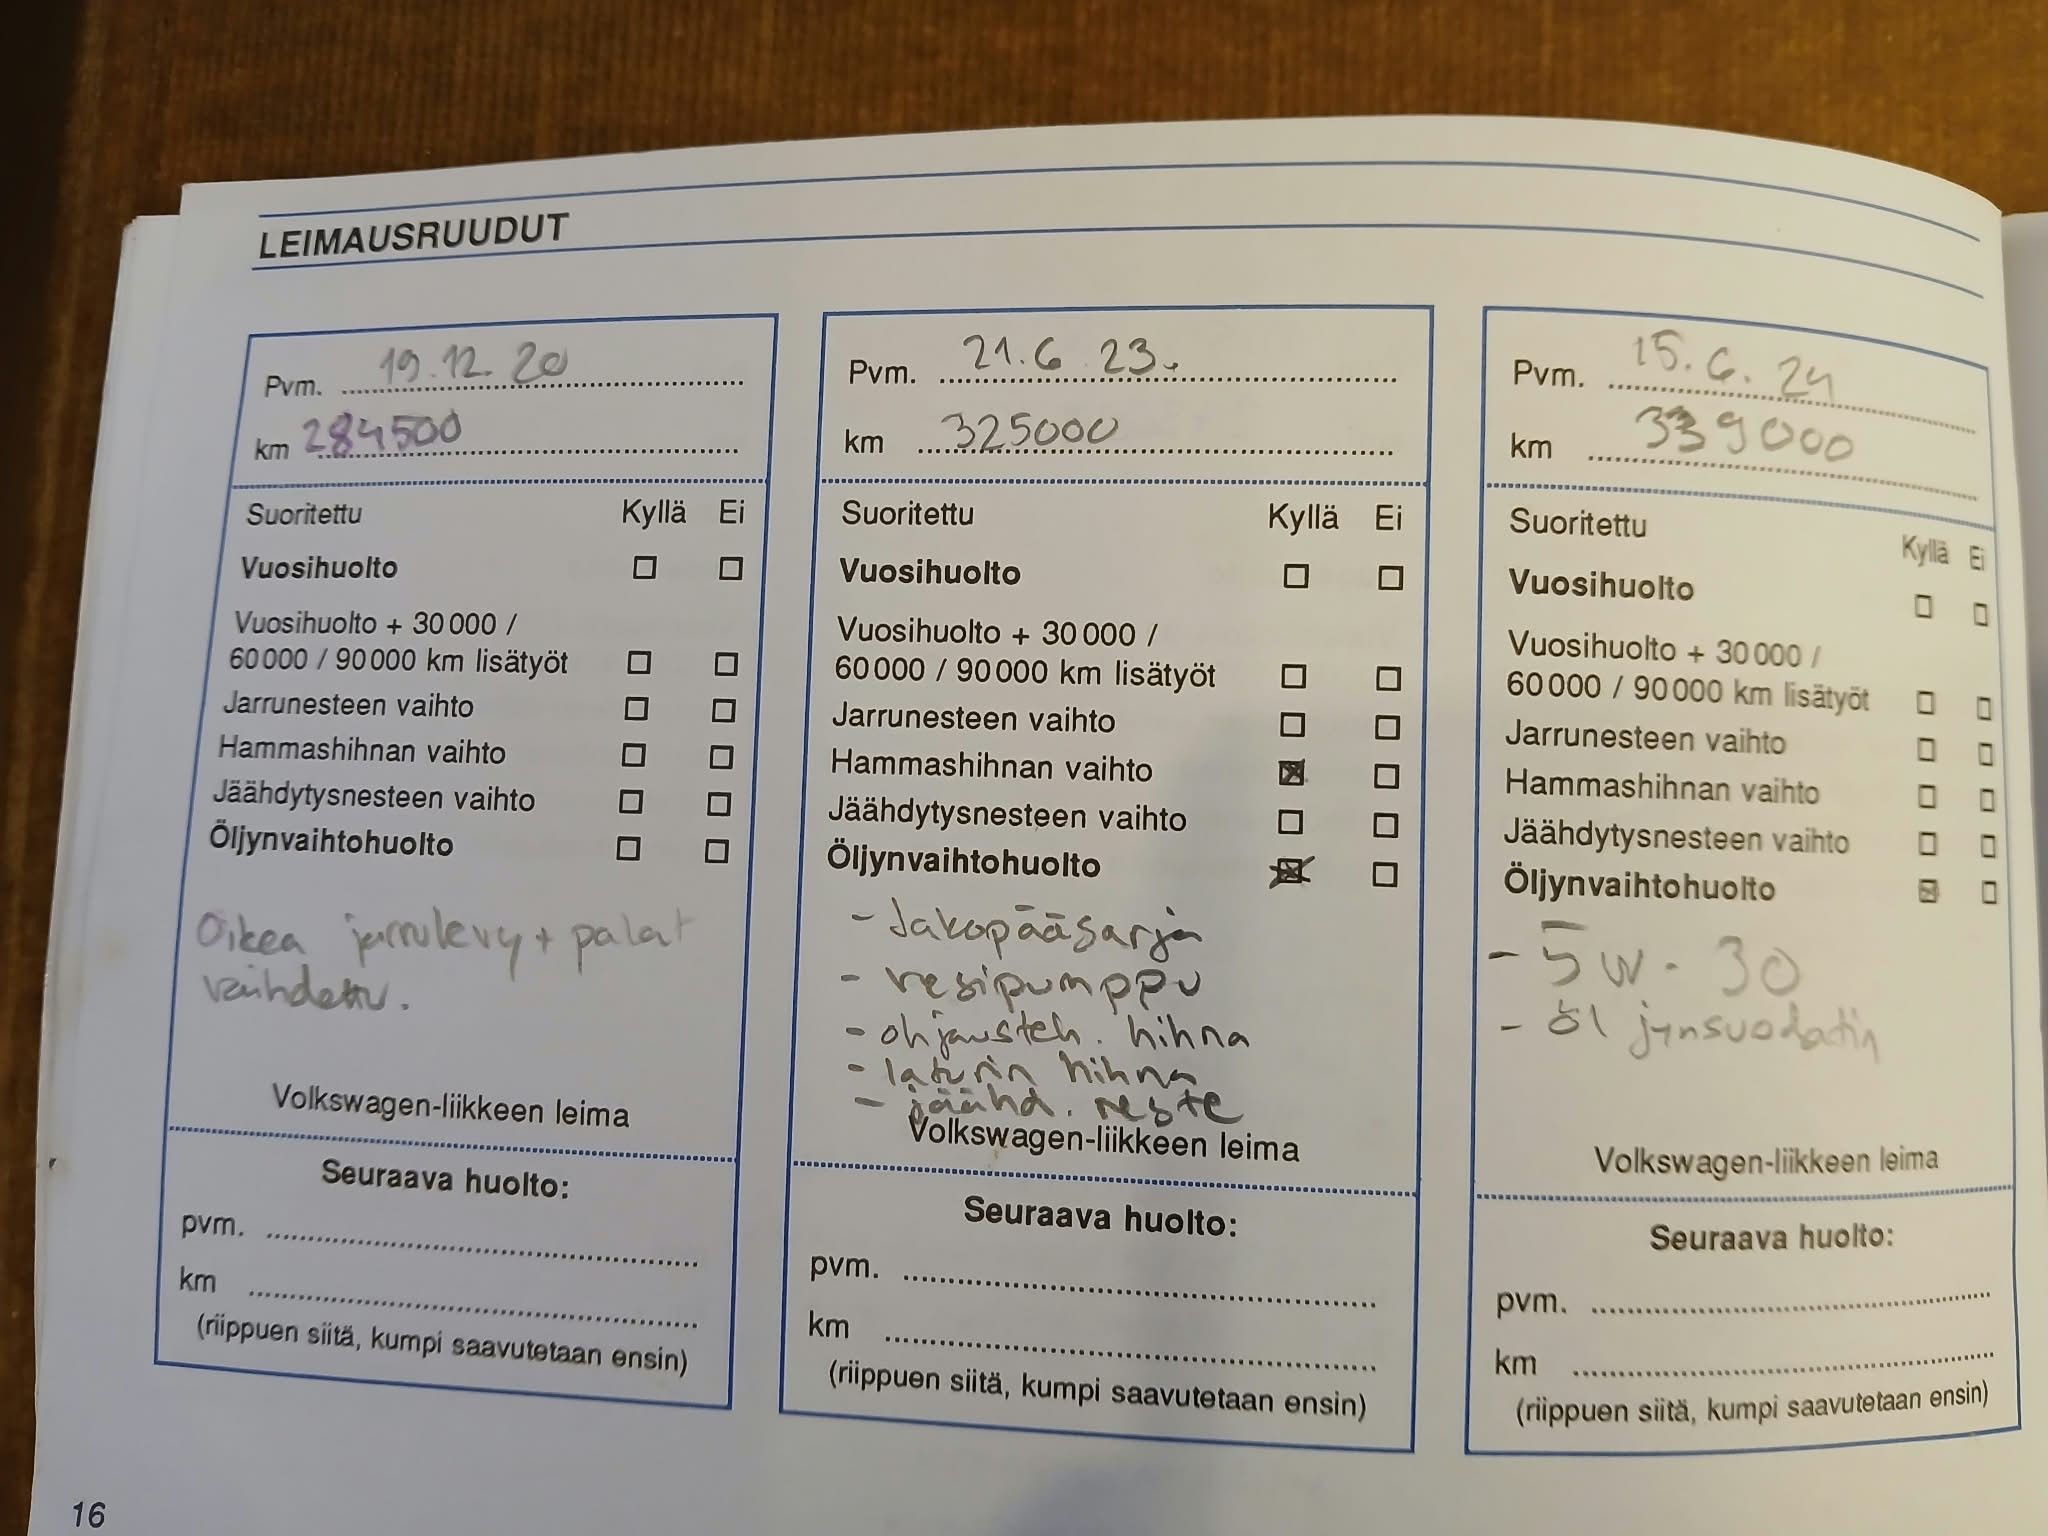 LEIMAUSRUUDUT
Pvm. 19.12.20
km 284500
Suoritettu Kyllä Ei
Vuosihuolto
Vuosihuolto + 30 000 /
60 000 / 90 000 km lisätyöt
Jarrunesteen vaihto
Hammashihnan vaihto
Jäähdytysnesteen vaihto
Öljynvaihtohuolto
Oikea jarrulevy + palat
vaihdettu.
Volkswagen-liikkeen leima
Seuraava huolto:
pvm.
km
(riippuen siitä, kumpi saavutetaan ensin)
Pvm. 21.6 23.
km 325000
Suoritettu Kyllä Ei
Vuosihuolto
Vuosihuolto + 30 000 /
60 000 / 90 000 km lisätyöt
Jarrunesteen vaihto
Hammashihnan vaihto
Jäähdytysnesteen vaihto
Öljynvaihtohuolto
- Jakopääsarja
- vesipumppu
- ohjausteh. hihna
- laturin hihna
- jäähd. neste
Volkswagen-liikkeen leima
Seuraava huolto:
pvm.
km
(riippuen siitä, kumpi saavutetaan ensin)
Pvm. 15.6.24
km 339000
Suoritettu Kyllä Ei
Vuosihuolto
Vuosihuolto + 30 000 /
60 000 / 90 000 km lisätyöt
Jarrunesteen vaihto
Hammashihnan vaihto
Jäähdytysnesteen vaihto
Öljynvaihtohuolto
- 5W-30
- öljynsuodatin
Volkswagen-liikkeen leima
Seuraava huolto:
pvm.
km
(riippuen siitä, kumpi saavutetaan ensin)
16